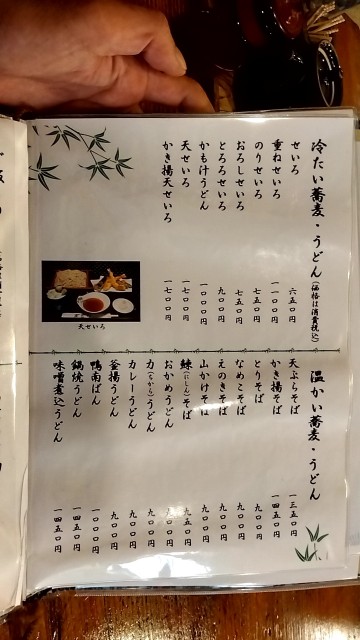 冷たい蕎麦・うどん（価格は消費税込）
せいろ 六五〇円
重ねせいろ 一一〇〇円
のりせいろ 七五〇円
おろしせいろ 七五〇円
とろろせいろ 九〇〇円
かも汁うどん 一〇〇〇円
天せいろ 一七〇〇円
かき揚天せいろ 一七〇〇円
天せいろ
温かい蕎麦・うどん
天ぷらそば 一三五〇円
かき揚そば 一四五〇円
とりそば 九〇〇円
なめこそば 九〇〇円
えのきそば 九〇〇円
山かけそば 九〇〇円
鰊（にしん）そば 九五〇円
おかめうどん 九〇〇円
力（ちから）うどん 九〇〇円
カレーうどん 九〇〇円
釜揚うどん 九〇〇円
鴨南ばん 一〇〇〇円
鍋焼うどん 一四五〇円
味噌煮込うどん 一四五〇円